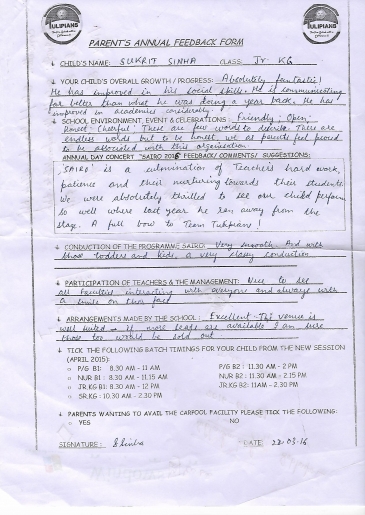 TULIPIANS
TULIPIANS
PARENT'S ANNUAL FEEDBACK FORM
CHILD'S NAME: SUKRIT SINHA CLASS: Jr. KG
YOUR CHILD'S OVERALL GROWTH / PROGRESS: Absolutely fantastic!
He has improved in his social skills. He is communicating
far better than what he was doing a year back. He has
improved in academics considerably.
SCHOOL ENVIRONMENT, EVENT & CELEBRATIONS: Friendly; Open;
Honest - Cheerful. These are few words to describe. There are
endless words but to be honest, we as parents feel proud
to be associated with this organisation
ANNUAL DAY CONCERT "SAIRO 2016 FEEDBACK/ COMMENTS/ SUGGESTIONS:
'SAIRO' is a culmination of Teachers hard work,
patience and their nurturing towards their students.
We were absolutely thrilled to see our child perform
so well where last year he ran away from the
stage. A full bow to Team Tulipians!
CONDUCTION OF THE PROGRAMME SAIRO: Very smooth. And with
those toddlers and kids, a very classy conduction
PARTICIPATION OF TEACHERS & THE MANAGEMENT: Nice to see
all faculties interacting with everyone and always with
a smile on their face
ARRANGEMENTS MADE BY THE SCHOOL: Excellent - The venue is
well suited - if more seats are available I am sure
those too would be sold out
TICK THE FOLLOWING BATCH TIMINGS FOR YOUR CHILD FROM THE NEW SESSION
(APRIL 2015):
P/G B1: 8.30 AM - 11 AM P/G B2 : 11.30 AM - 2 PM
NUR B1 : 8.30 AM - 11.15 AM NUR B2 : 11.30 AM - 2.15 PM
JR.KG B1 : 8.30 AM - 12 PM JR.KG B2: 11AM - 2.30 PM
SR.KG : 10.30 AM - 2.30 PM
PARENTS WANTING TO AVAIL THE CARPOOL FACILITY PLEASE TICK THE FOLLOWING:
YES NO
SIGNATURE: SSinha DATE: 22-03-16